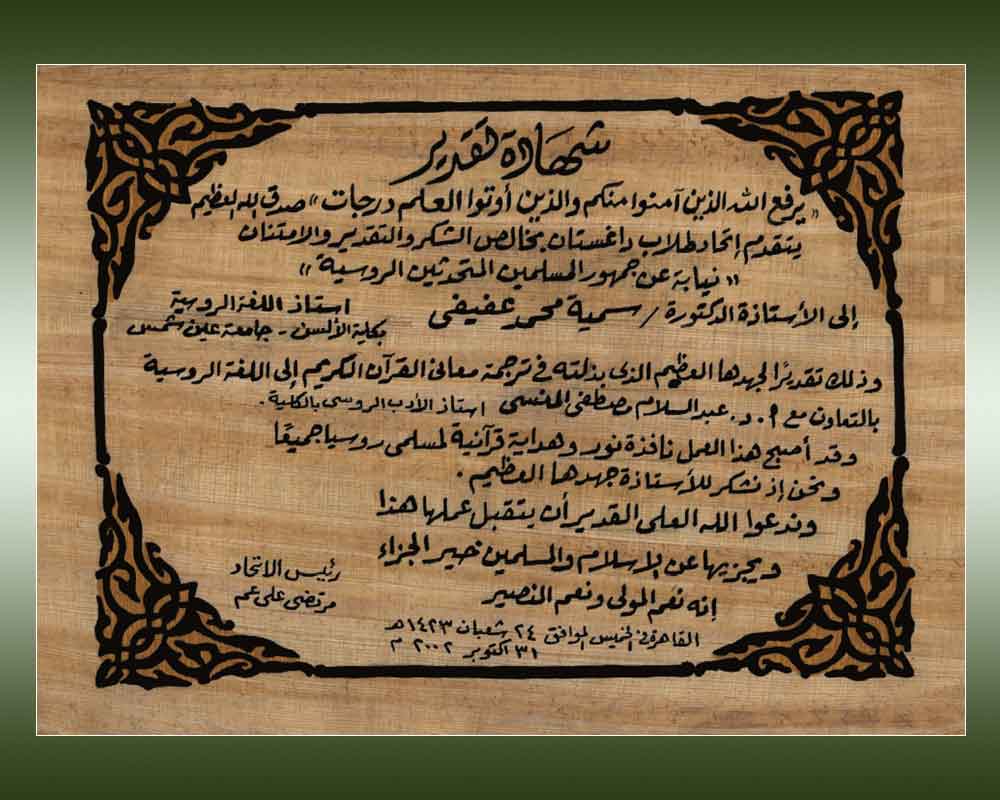 شهادة تقدير
« يرفع الله الذين آمنوا منكم والذين أوتوا العلم درجات » صدق الله العظيم
يتقدم إتحاد طلاب داغستان بخالص الشكر والتقدير والامتنان
« نيابة عن جمهور المسلمين المتحدثين الروسية »
إلى الأستاذة الدكتورة / سمية محمد عفيفى
استاذ اللغة الروسية
بكلية الألسن - جامعة عين شمس
وذلك تقديرًا لجهدها العظيم الذى بذلته فى ترجمة معانى القرآن الكريم إلى اللغة الروسية
بالتعاون مع أ. د. عبد السلام مصطفى المنسى استاذ الأدب الروسى بالكلية.
وقد أصبح هذا العمل نافذة نور وهداية قرآنية لمسلمى روسيا جميعًا
ونحن إذ نشكر للأستاذة جهدها العظيم.
وندعوا الله العلى القدير أن يتقبل عملها هذا
ويجزيها عن الإسلام والمسلمين خير الجزاء
إنه نعم المولى ونعم النصير
القاهرة فى الخميس الموافق ٢٤ شعبان ١٤٢٣ هـ
٣١ اكتوبر ٢٠٠٢ م
رئيس الاتحاد
مرتضى على عم